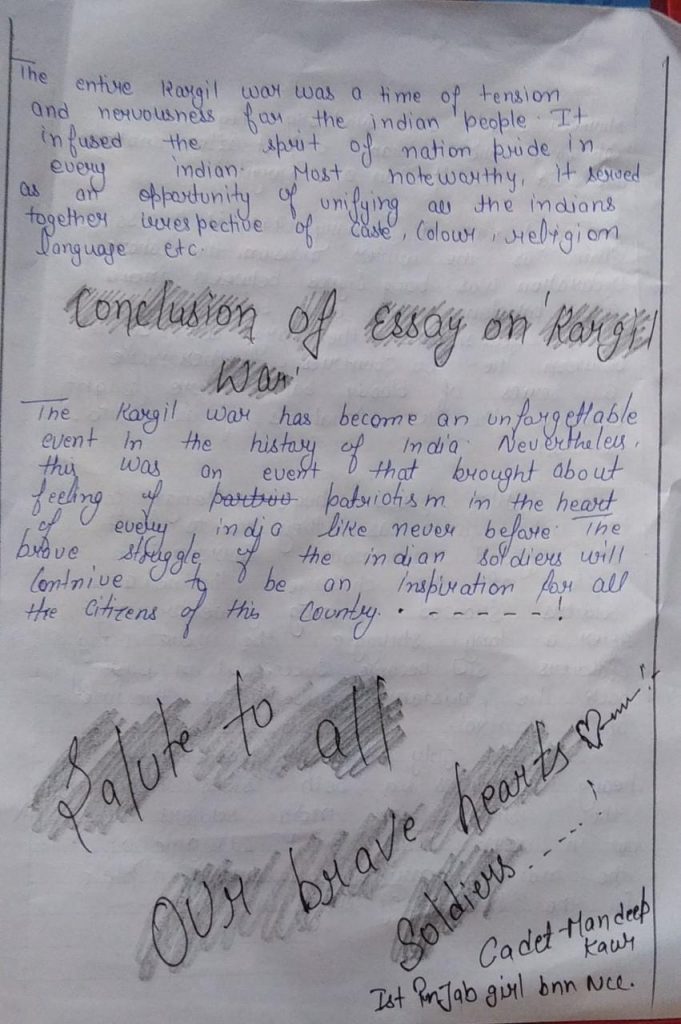 The entire Kargil war was a time of tension
and nervousness far the indian people. It
infused the sprit of nation pride in
every indian. Most noteworthy, it served
as an opportunity of unifying all the indians
together irrespective of case, Colour, religion
language etc.
Conclusion of Essay on 'Kargil
War'
The Kargil war has become an unforgettable
event in the history of India. Nevertheless,
this was an event that brought about
feeling of patriotism in the heart
of every india like never before. The
brave struggle of the indian soldiers will
Contnive to be an inspiration for all
the Citizens of this Country. - - - - - - !
Salute to all
Our brave hearts ♡
Soldiers - - - - - !
Cadet Mandeep
Kaur
Ist Punjab girl bnn Ncc.